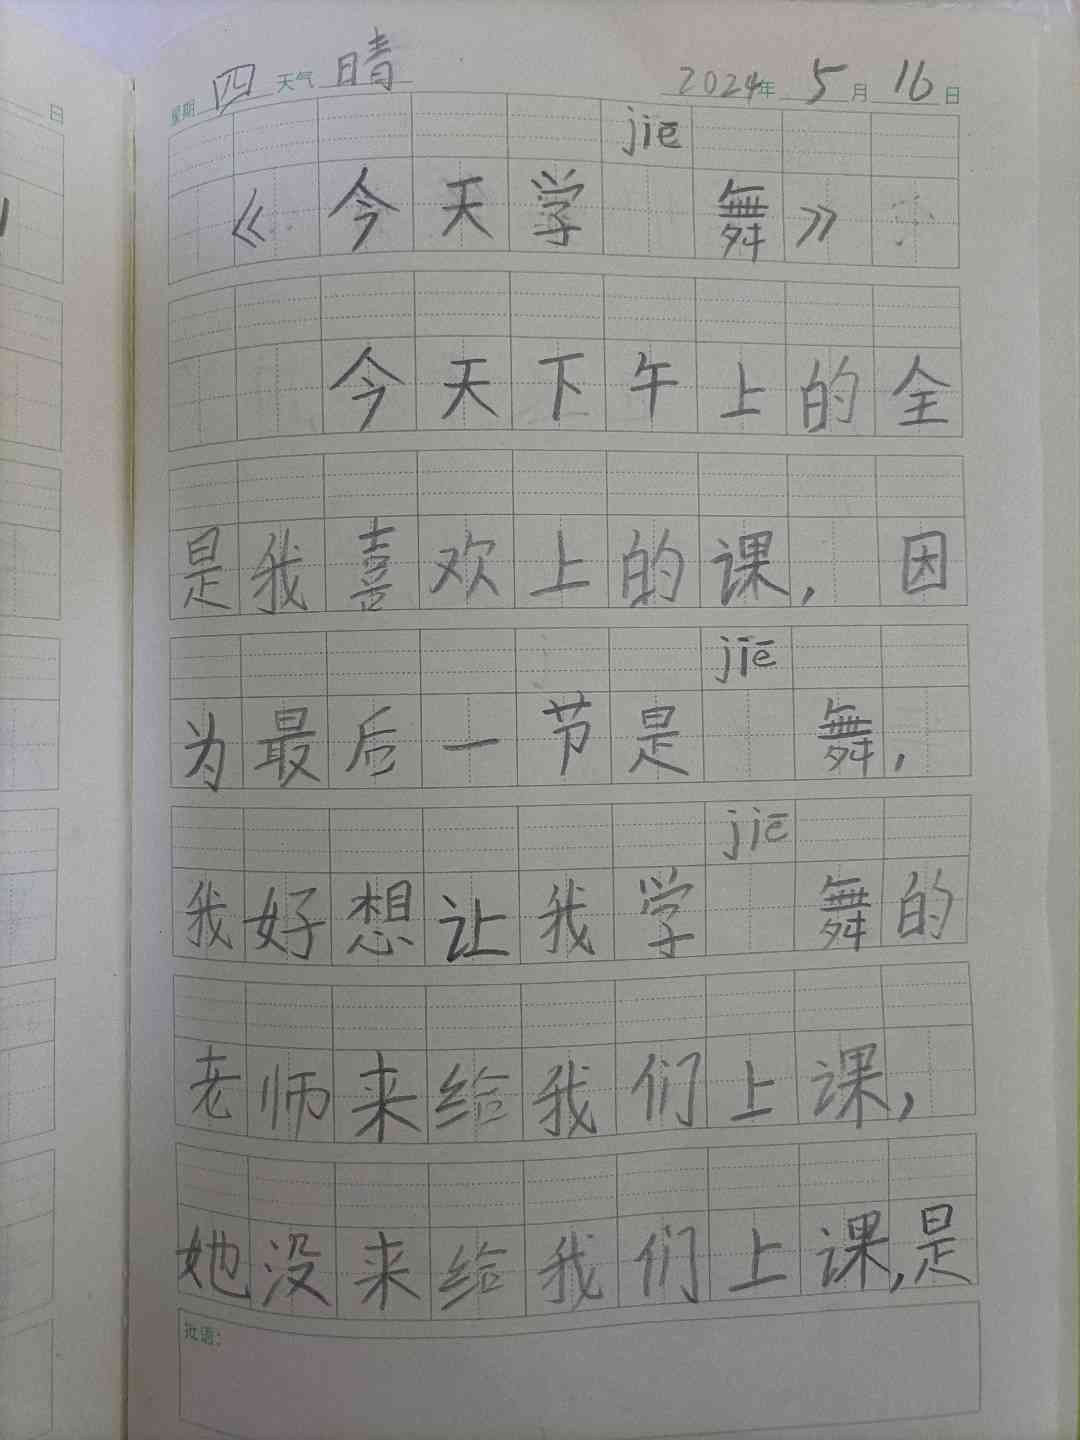 星期 四 天气 晴 2024年 5月 16日
jiē
《今天学 舞》
今天下午上的全
是我喜欢上的课,因
jiē
为最后一节是 舞,
jiē
我好想让我学 舞的
老师来给我们上课,
她没来给我们上课,是
批语:
日